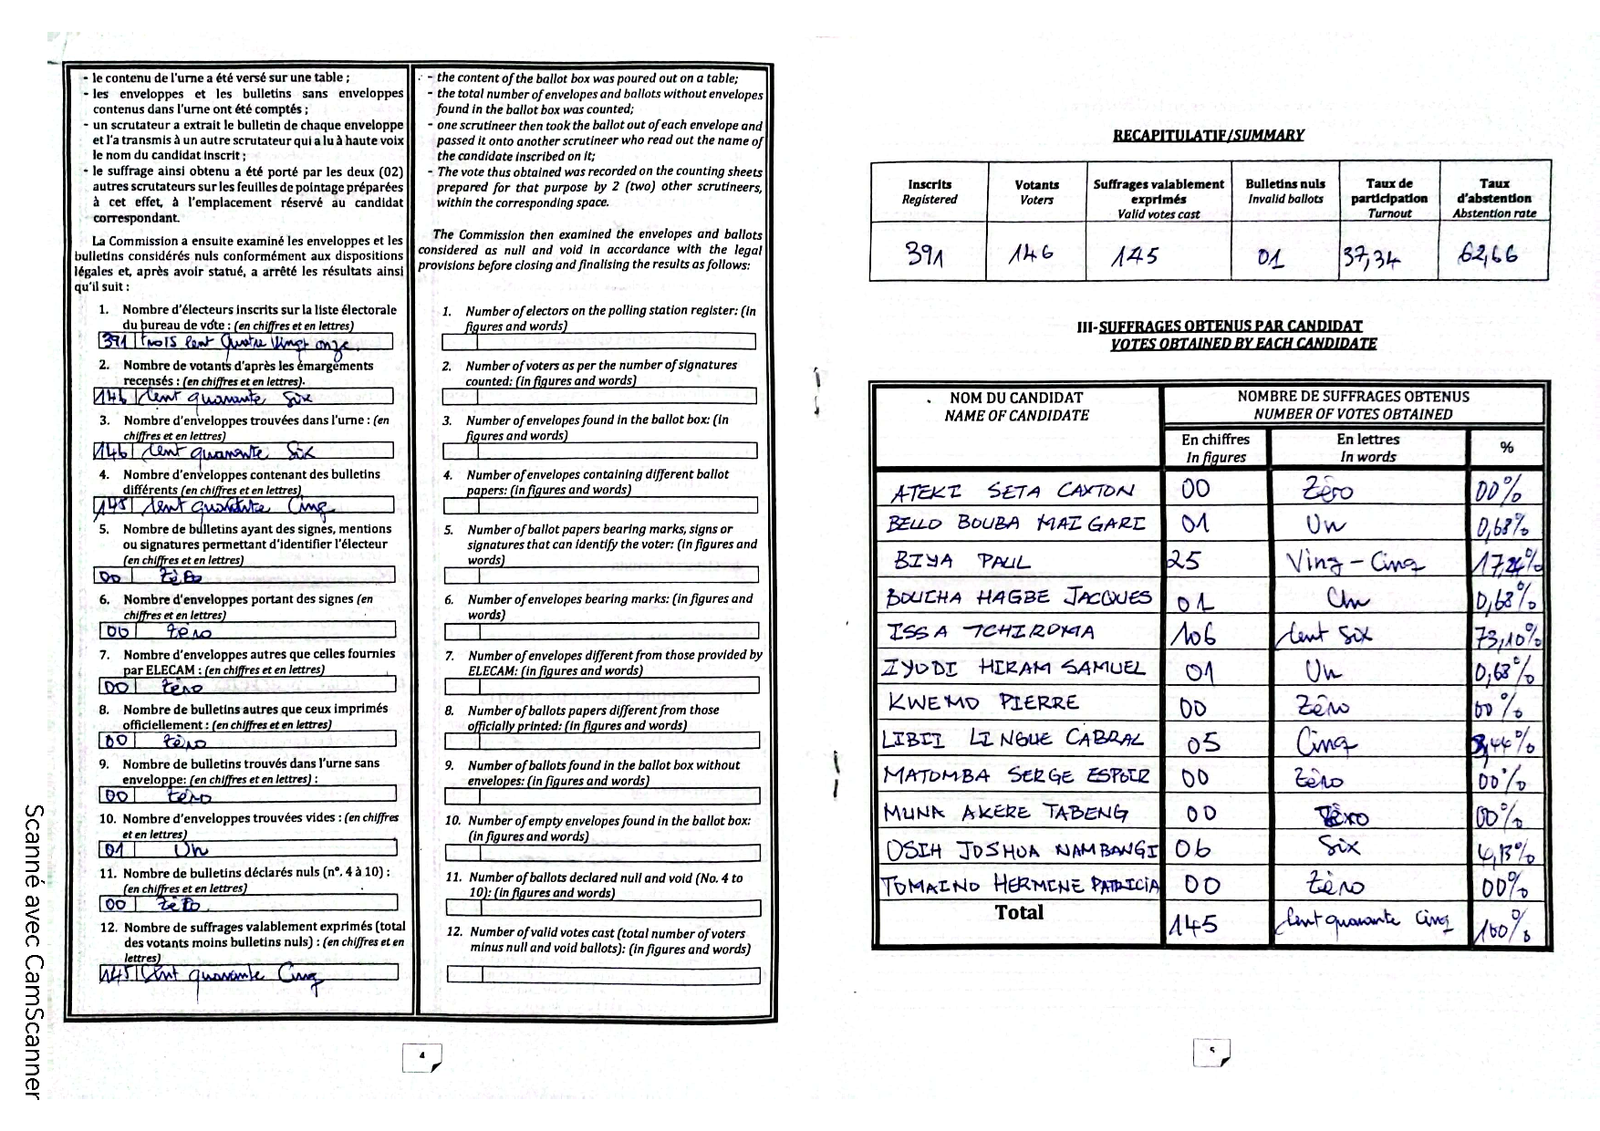 - le contenu de l'urne a été versé sur une table ;
- les enveloppes et les bulletins sans enveloppes
contenus dans l'urne ont été comptés ;
- un scrutateur a extrait le bulletin de chaque enveloppe
et l'a transmis à un autre scrutateur qui a lu à haute voix
le nom du candidat inscrit ;
- le suffrage ainsi obtenu a été porté par les deux (02)
autres scrutateurs sur les feuilles de pointage préparées
à cet effet, à l'emplacement réservé au candidat
correspondant.
La Commission a ensuite examiné les enveloppes et les
bulletins considérés nuls conformément aux dispositions
légales et, après avoir statué, a arrêté les résultats ainsi
qu'il suit :
1. Nombre d'électeurs inscrits sur la liste électorale
du bureau de vote : (en chiffres et en lettres)
391 trois Cent Quatre Vingt onze
2. Nombre de votants d'après les émargements
recensés : (en chiffres et en lettres).
146 Cent quarante Six
3. Nombre d'enveloppes trouvées dans l'urne : (en
chiffres et en lettres)
146 Cent quarante Six
4. Nombre d'enveloppes contenant des bulletins
différents (en chiffres et en lettres)
145 Cent quarante Cinq
5. Nombre de bulletins ayant des signes, mentions
ou signatures permettant d'identifier l'électeur
(en chiffres et en lettres)
00 Zéro
6. Nombre d'enveloppes portant des signes (en
chiffres et en lettres)
00 Zéro
7. Nombre d'enveloppes autres que celles fournies
par ELECAM : (en chiffres et en lettres)
00 Zéro
8. Nombre de bulletins autres que ceux imprimés
officiellement : (en chiffres et en lettres)
00 Zéro
9. Nombre de bulletins trouvés dans l'urne sans
enveloppe: (en chiffres et en lettres) :
00 Zéro
10. Nombre d'enveloppes trouvées vides : (en chiffres
et en lettres)
01 Un
11. Nombre de bulletins déclarés nuls (n°. 4 à 10) :
(en chiffres et en lettres)
00 Zéro
12. Nombre de suffrages valablement exprimés (total
des votants moins bulletins nuls) : (en chiffres et en
lettres)
145 Cent quarante Cinq
- the content of the ballot box was poured out on a table;
- the total number of envelopes and ballots without envelopes
found in the ballot box was counted;
- one scrutineer then took the ballot out of each envelope and
passed it onto another scrutineer who read out the name of
the candidate inscribed on it;
- The vote thus obtained was recorded on the counting sheets
prepared for that purpose by 2 (two) other scrutineers,
within the corresponding space.
The Commission then examined the envelopes and ballots
considered as null and void in accordance with the legal
provisions before closing and finalising the results as follows:
1. Number of electors on the polling station register: (in
figures and words)
2. Number of voters as per the number of signatures
counted: (in figures and words)
3. Number of envelopes found in the ballot box: (in
figures and words)
4. Number of envelopes containing different ballot
papers: (in figures and words)
5. Number of ballot papers bearing marks, signs or
signatures that can identify the voter: (in figures and
words)
6. Number of envelopes bearing marks: (in figures and
words)
7. Number of envelopes different from those provided by
ELECAM: (in figures and words)
8. Number of ballots papers different from those
officially printed: (in figures and words)
9. Number of ballots found in the ballot box without
envelopes: (in figures and words)
10. Number of empty envelopes found in the ballot box:
(in figures and words)
11. Number of ballots declared null and void (No. 4 to
10): (in figures and words)
12. Number of valid votes cast (total number of voters
minus null and void ballots): (in figures and words)
4
Scanné avec CamScanner
RECAPITULATIF/SUMMARY
Inscrits Votants Suffrages valablement Bulletins nuls Taux de Taux
Registered Voters exprimés Invalid ballots participation d'abstention
Valid votes cast Turnout Abstention rate
391 146 145 01 37,34 62,66
III-SUFFRAGES OBTENUS PAR CANDIDAT
VOTES OBTAINED BY EACH CANDIDATE
NOM DU CANDIDAT NOMBRE DE SUFFRAGES OBTENUS
NAME OF CANDIDATE NUMBER OF VOTES OBTAINED
En chiffres En lettres %
In figures In words
ATEKI SETA CAXTON 00 Zéro 00%
BELLO BOUBA MAIGARI 01 Un 0,68%
BIYA PAUL 25 Ving-Cinq 17,24%
BOUCHA HAGBE JACQUES 01 Un 0,68%
ISSA TCHIROMA 106 Cent Six 73,10%
IYODI HIRAM SAMUEL 01 Un 0,68%
KWEMO PIERRE 00 Zéro 00%
LIBII LI NGUE CABRAL 05 Cinq 3,44%
MATOMBA SERGE ESPOIR 00 Zéro 00%
MUNA AKERE TABENG 00 Zéro 00%
OSIH JOSHUA NAMBANGI 06 Six 4,13%
TOMAINO HERMINE PATRICIA 00 Zéro 00%
Total 145 Cent quarante Cinq 100%
5